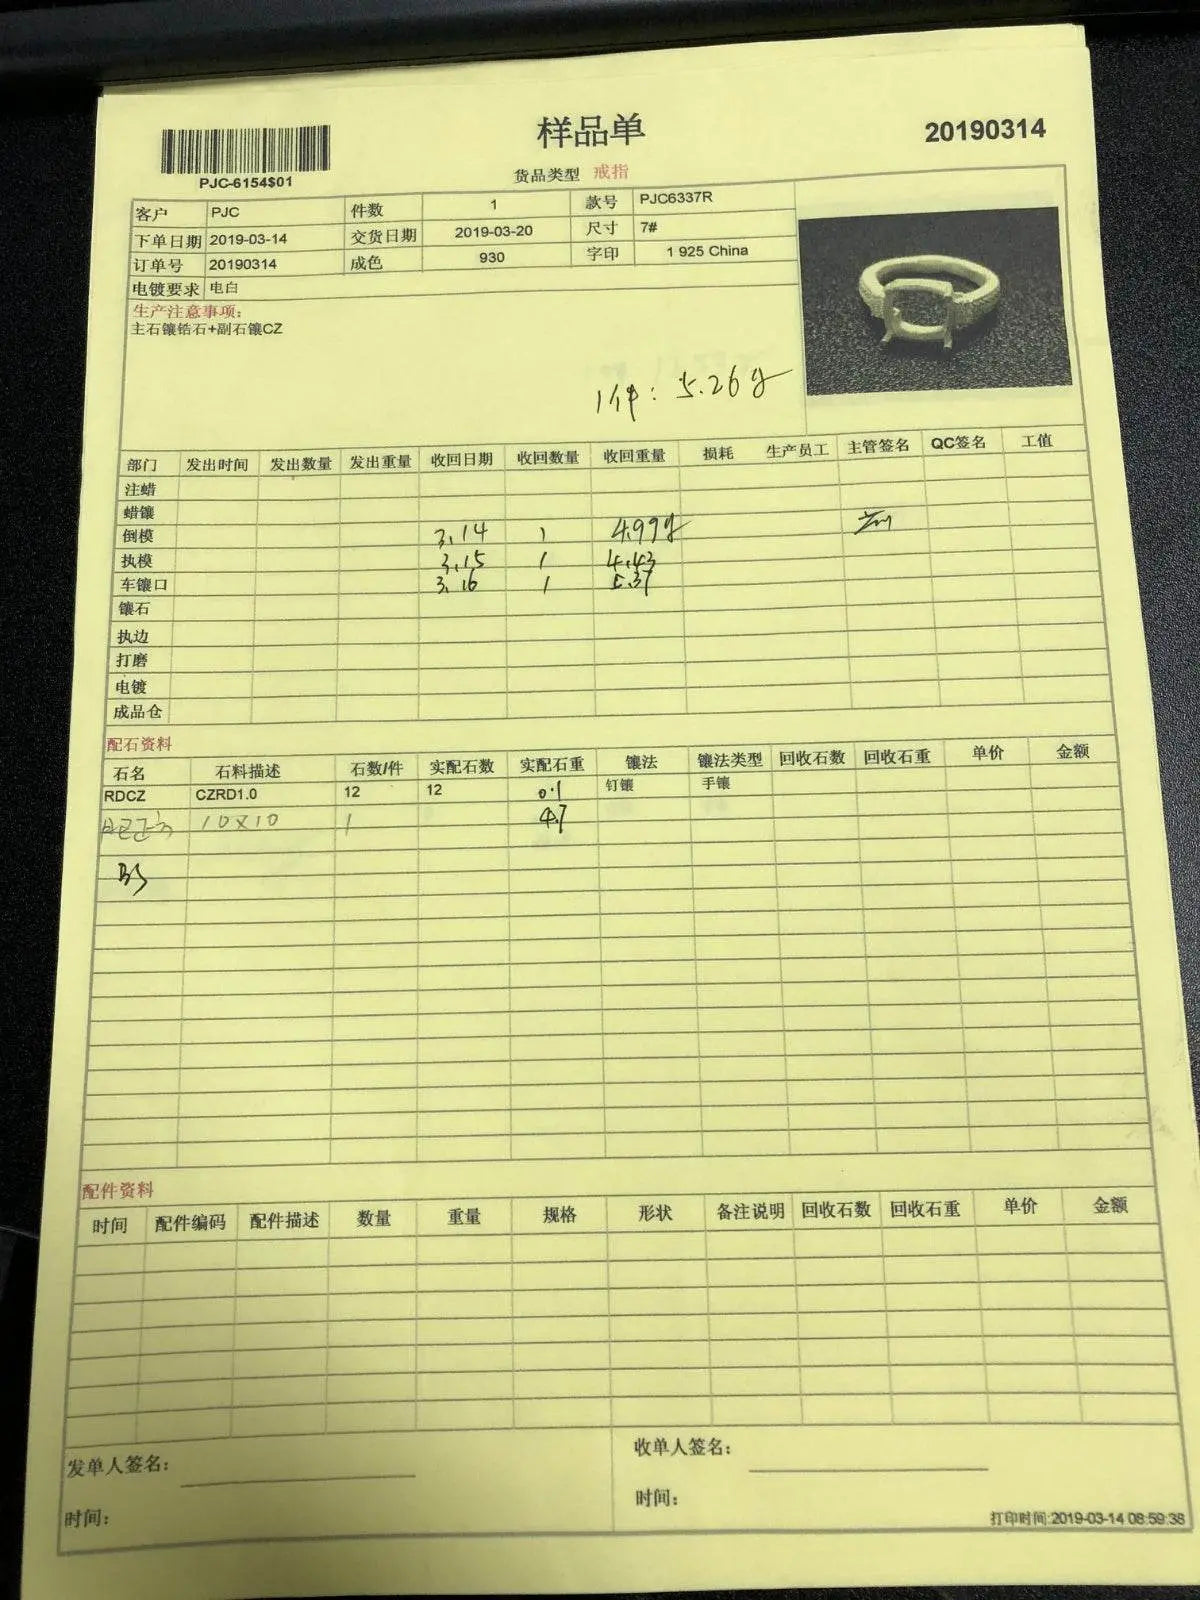 样品单
20190314
PJC-6154$01
货品类型 戒指
客户 PJC 件数 1 款号 PJC6337R
下单日期 2019-03-14 交货日期 2019-03-20 尺寸 7#
订单号 20190314 成色 930 字印 1 925 China
电镀要求 电白
生产注意事项:
主石镶锆石+副石镶CZ
1件: 5.26g
部门 发出时间 发出数量 发出重量 收回日期 收回数量 收回重量 损耗 生产员工 主管签名 QC签名 工值
注蜡
蜡镶
倒模 3.14 1 4.99g
执模 3.15 1 4.43
车镶口 3.16 1 5.37
镶石
执边
打磨
电镀
成品仓
配石资料
石名 石料描述 石数/件 实配石数 实配石重 镶法 镶法类型 回收石数 回收石重 单价 金额
RDCZ CZRD1.0 12 12 0.1 钉镶 手镶
10X10 1 4.7
配件资料
时间 配件编码 配件描述 数量 重量 规格 形状 备注说明 回收石数 回收石重 单价 金额
发单人签名: 收单人签名:
时间: 时间:
打印时间:2019-03-14 08:59:38